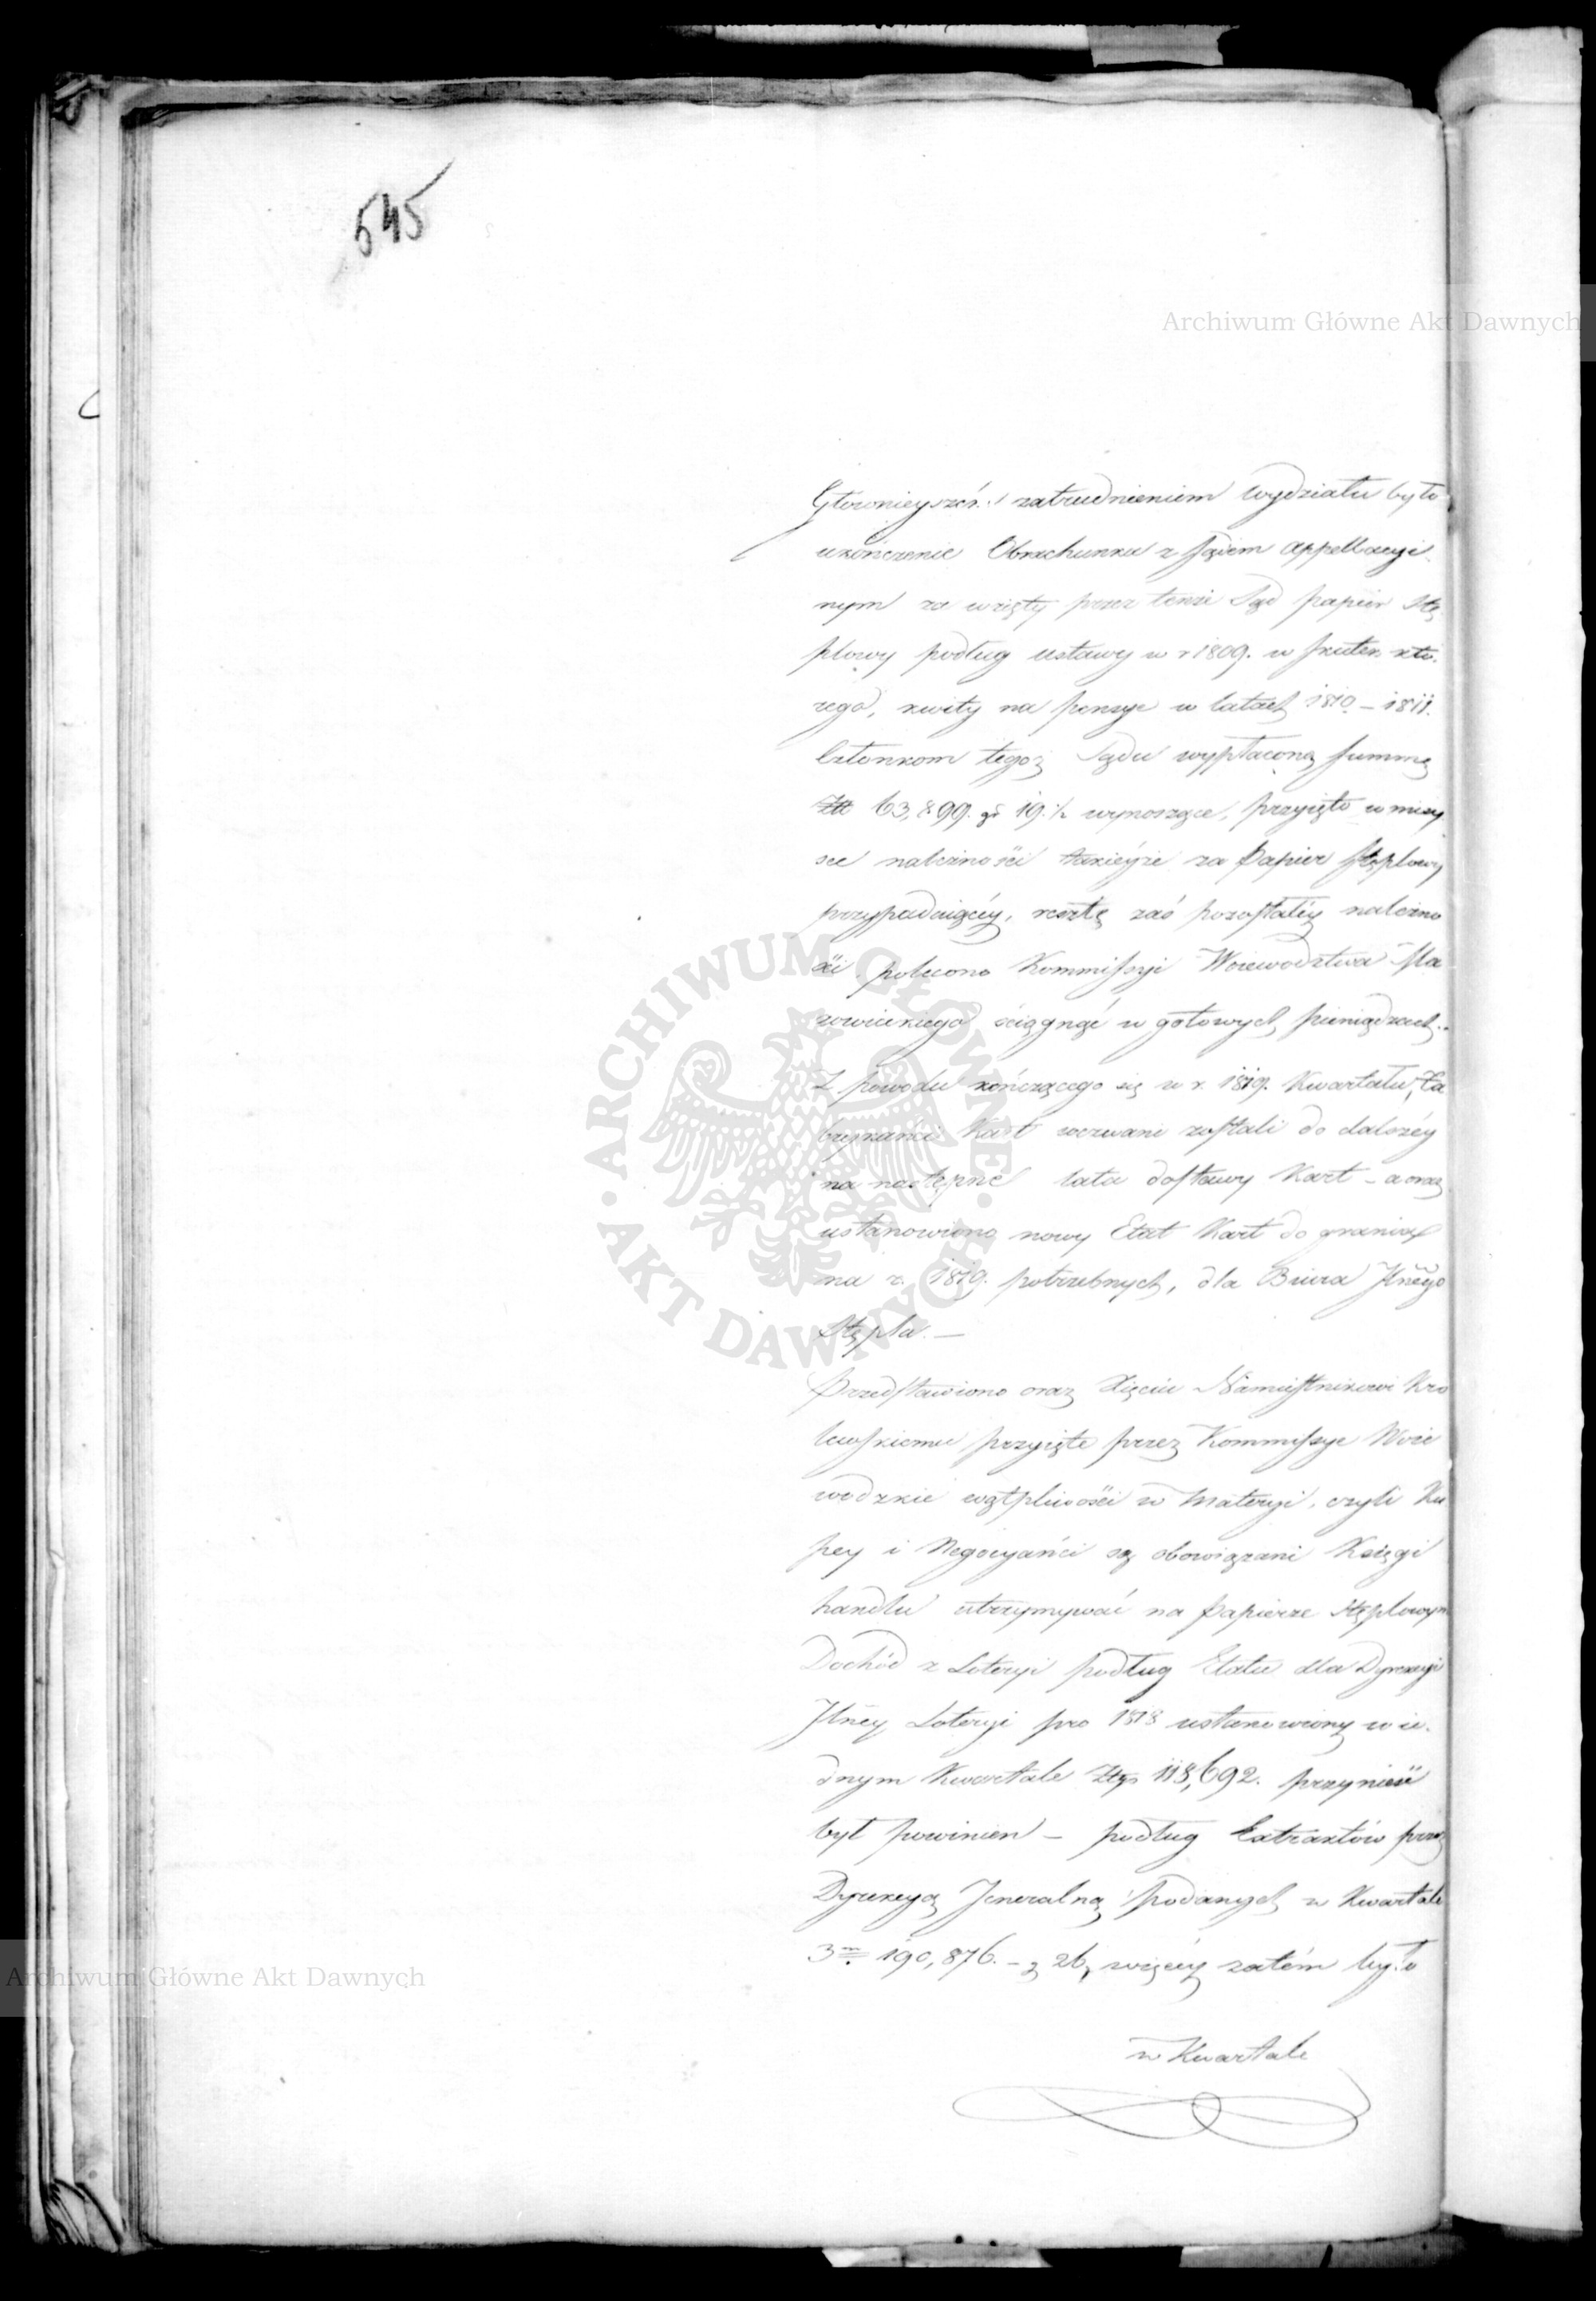 545
Archiwum Główne Akt Dawnych
zatrudnieniem wydziału było
ukończenie Obrachunku z Sądem Appellacyi-
nym za wzięty przez tenże Sąd papier stę
plowy podług ustawy w r 1809. w skutek któ-
rego, kwity na pensye w latach 1810 – 1811.
Członkom tegoż Sądu wypłaconą summę
63,899. gr 19.½ wynoszące, przyięto w miey
sce należności takieyże za Papier stęplowy
przypadaiącey, resztę zaś pozostałey należno
ści polecono Kommissyi Woiewodztwa Ma
zowieckiego ściągnąć w gotowych pieniądzach.
Z powodu kończącego się w r. 1819. Kwartału, Fa
brykanci Kart wezwani zostali do dalszéy
na następne lata dostawy Kart – a oraz
ustanowiono nowy Etat Kart do grania
na r. 1819. potrzebnych, dla Biura Jlnego
Stępla. –
Przedstawiono oraz Xięciu Namiestnikowi Kró
lewskiemu przyięte przez Kommissye Woie
wodzkie wątpliwości w materyi, czyli Ku
pcy i Negocyańci są obowiązani Księgi
handlu utrzymywać na Papierze stęplowym
Dochód z Loteryi podług Etatu dla Dyrekcyi
Jlney Loteryi pro 1818 ustanowiony w ie-
dnym Kwartale Złp 118,692. przynieść
był powinien – podług Extraktów przez
Dyrekcyą Jeneralną podanych w Kwartale
3m 190,876. – g 26, więcéy zatém było
w Kwartale
ARCHIWUM GŁÓWNE AKT DAWNYCH
Archiwum Główne Akt Dawnych